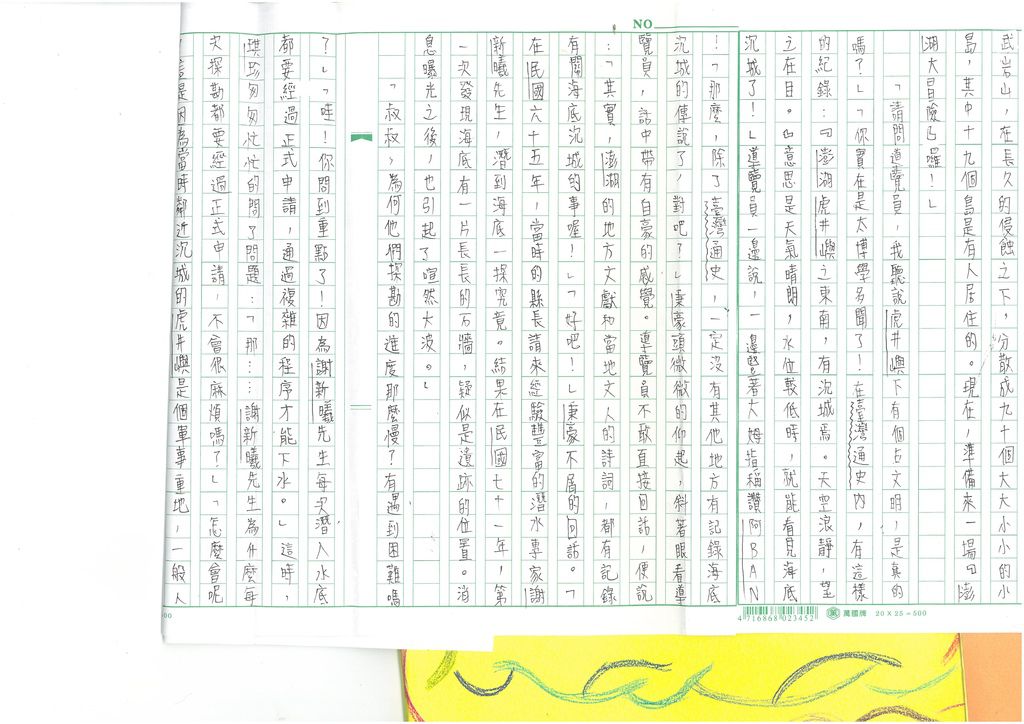 NO
武岩山，在長久的侵蝕之下，分散成九十個大大小小的小
島，其中十九個島是有人居住的。現在，準備來一場『澎
湖大冒險』囉！」
「請問導覽員，我聽說虎井嶼下有個古文明，是真的
嗎？」「你實在是太博學多聞了！在臺灣通史內，有這樣
的紀錄：『澎湖虎井嶼之東南，有沉城焉。天空浪靜，望
之在目。』意思是天氣晴朗，水位較低時，就能看見海底
沉城了！」導覽員一邊說，一邊豎著大姆指稱讚阿BAN
！「那麼，除了臺灣通史，一定沒有其他地方有記錄海底
沉城的傳說了，對吧？」秉豪頭微微的仰起，斜著眼看導
覽員，話中帶有自豪的感覺。導覽員不敢直接回話，便說
：「其實，澎湖的地方文獻和當地文人的詩詞，都有記錄
有關海底沉城的事喔！」「好吧！」秉豪不屑的回話。「
在民國六十五年，當時的縣長請來經驗豐富的潛水專家謝
新曦先生，潛到海底一探究竟。結果在民國七十一年，第
一次發現海底有一片長長的石牆，疑似是遺跡的位置。消
息曝光之後，也引起了喧然大波。」
「叔叔，為何他們探勘的進度那麼慢？有遇到困難嗎
？」「哇！你問到重點了！因為謝新曦先生每次潛入水底
都要經過正式申請，通過複雜的程序才能下水。」這時，
琪珍匆匆忙忙的問了問題：「那……謝新曦先生為什麼每
次探勘都要經過正式申請，不會很麻煩嗎？」「怎麼會呢
！這是因為當時鄰近沉城的虎井嶼是個軍事重地，一般人
4716868023452
萬國牌 20X25=500
00